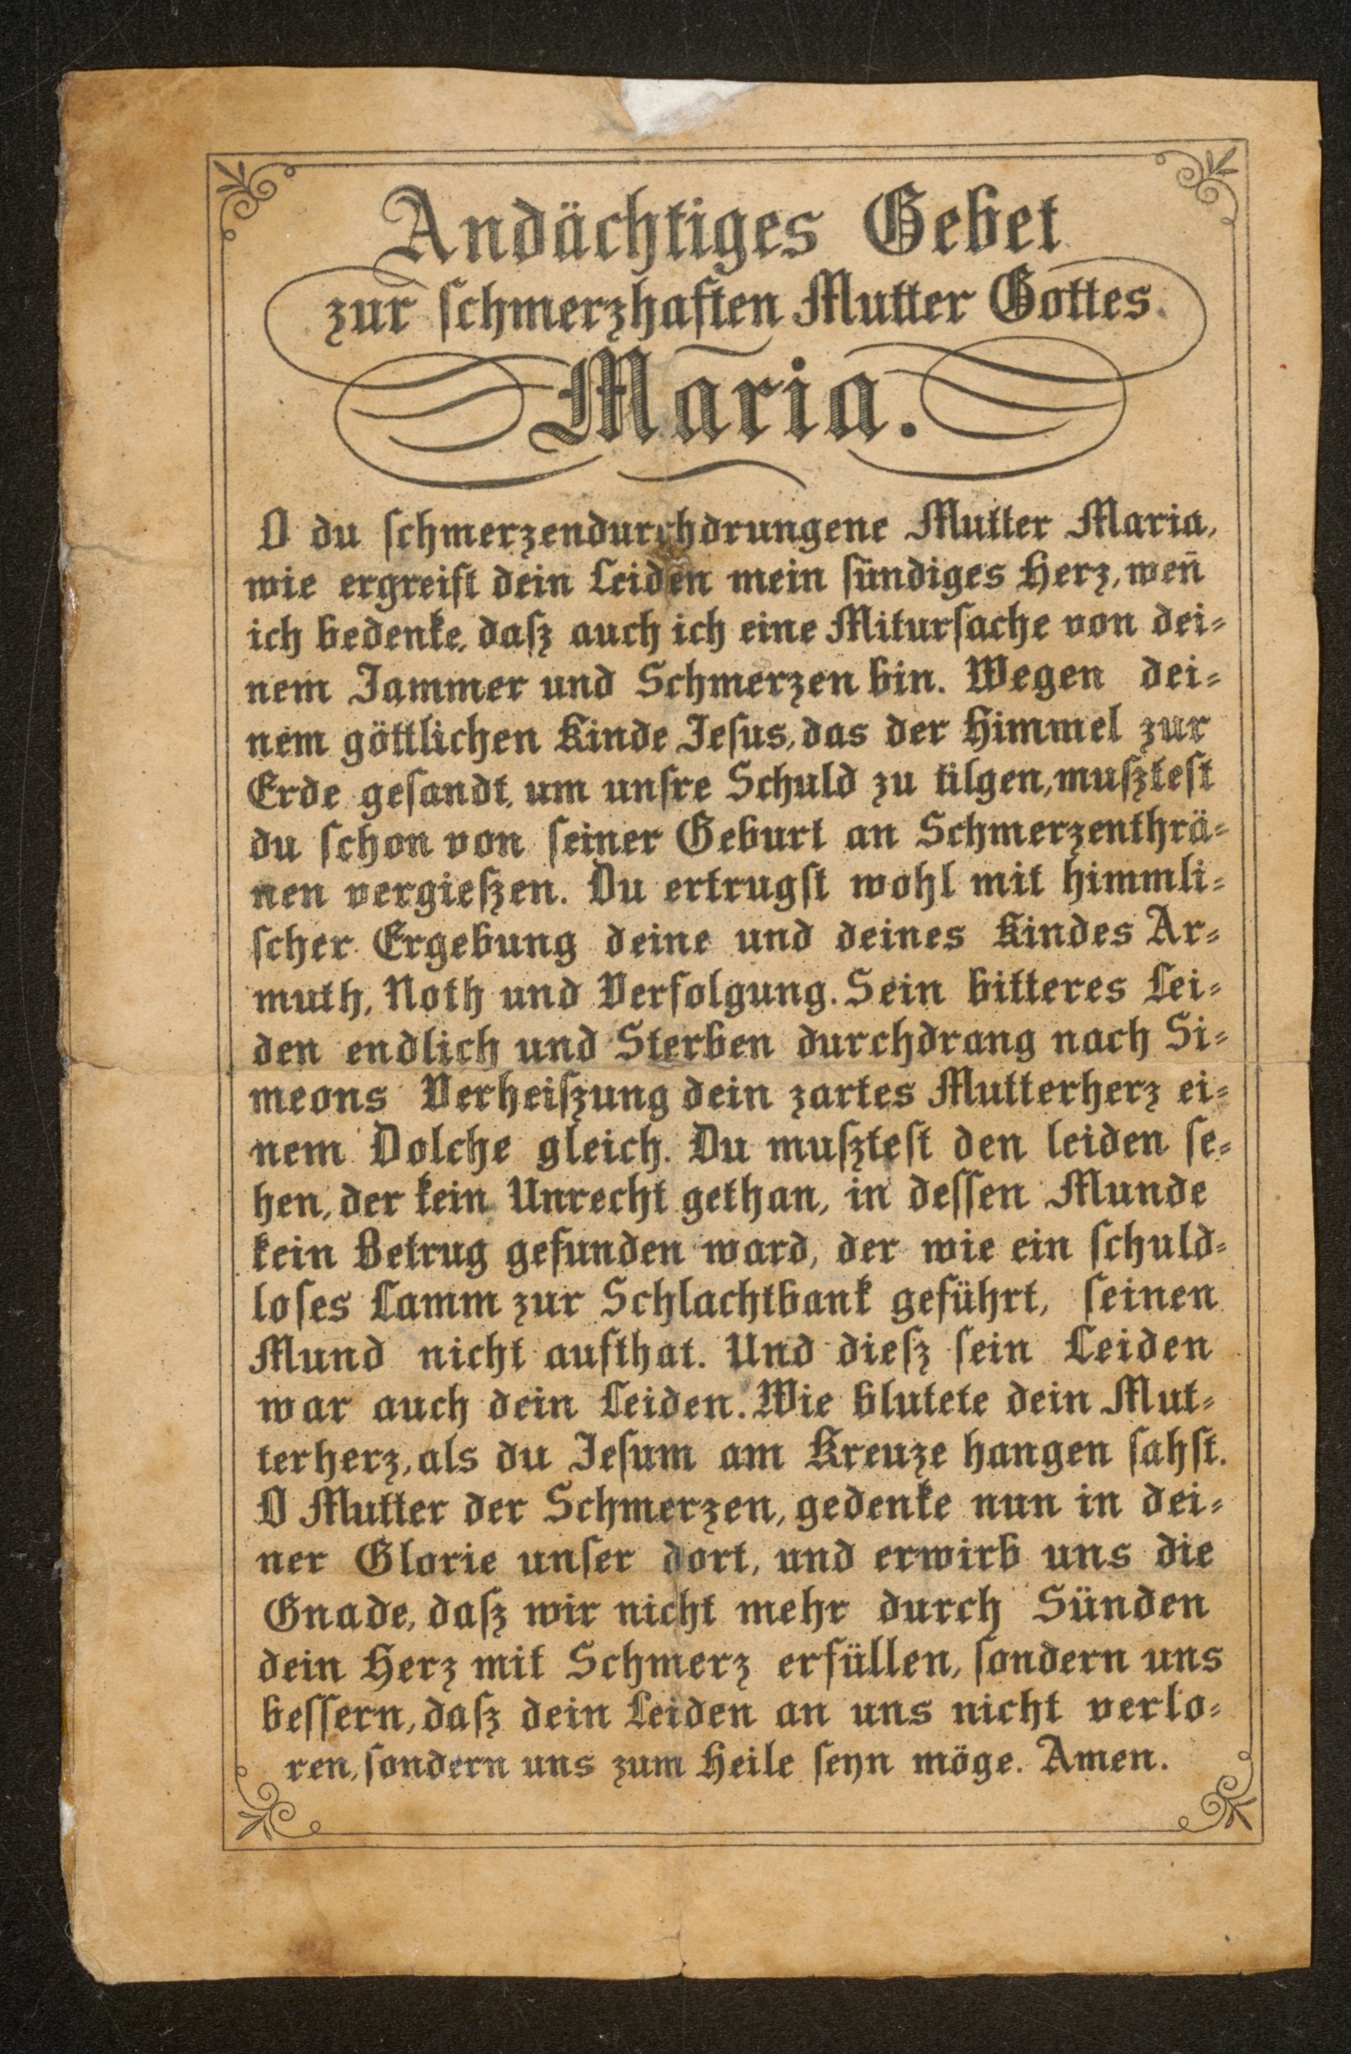 Andächtiges Gebet
zur ſchmerzhaften Mutter Gottes
Maria.
O du ſchmerzendurchdrungene Mutter Maria,
wie ergreift dein Leiden mein ſündiges Herz, wen̄
ich bedenke, daſz auch ich eine Miturſache von dei⸗
nem Jammer und Schmerzen bin. Wegen dei⸗
nem göttlichen Kinde Jeſus, das der Himmel zur
Erde geſandt, um unſre Schuld zu tilgen, muſzteſt
du ſchon von ſeiner Geburt an Schmerzenthrä⸗
nen vergieſzen. Du ertrugſt wohl mit himmli⸗
ſcher Ergebung deine und deines Kindes Ar⸗
muth, Noth und Verfolgung. Sein bitteres Lei⸗
den endlich und Sterben durchdrang nach Si⸗
meons Verheiſzung dein zartes Mutterherz ei⸗
nem Dolche gleich. Du muſzteſt den leiden ſe⸗
hen, der kein Unrecht gethan, in deſſen Munde
kein Betrug gefunden ward, der wie ein ſchuld⸗
loſes Lamm zur Schlachtbank geführt, ſeinen
Mund nicht aufthat. Und dieſz ſein Leiden
war auch dein Leiden. Wie blutete dein Mut⸗
terherz, als du Jeſum am Kreuze hangen ſahſt.
O Mutter der Schmerzen, gedenke nun in dei⸗
ner Glorie unſer dort, und erwirb uns die
Gnade, daſz wir nicht mehr durch Sünden
dein Herz mit Schmerz erfüllen, ſondern uns
beſſern, daſz dein Leiden an uns nicht verlo⸗
ren, ſondern uns zum Heile ſeyn möge. Amen.